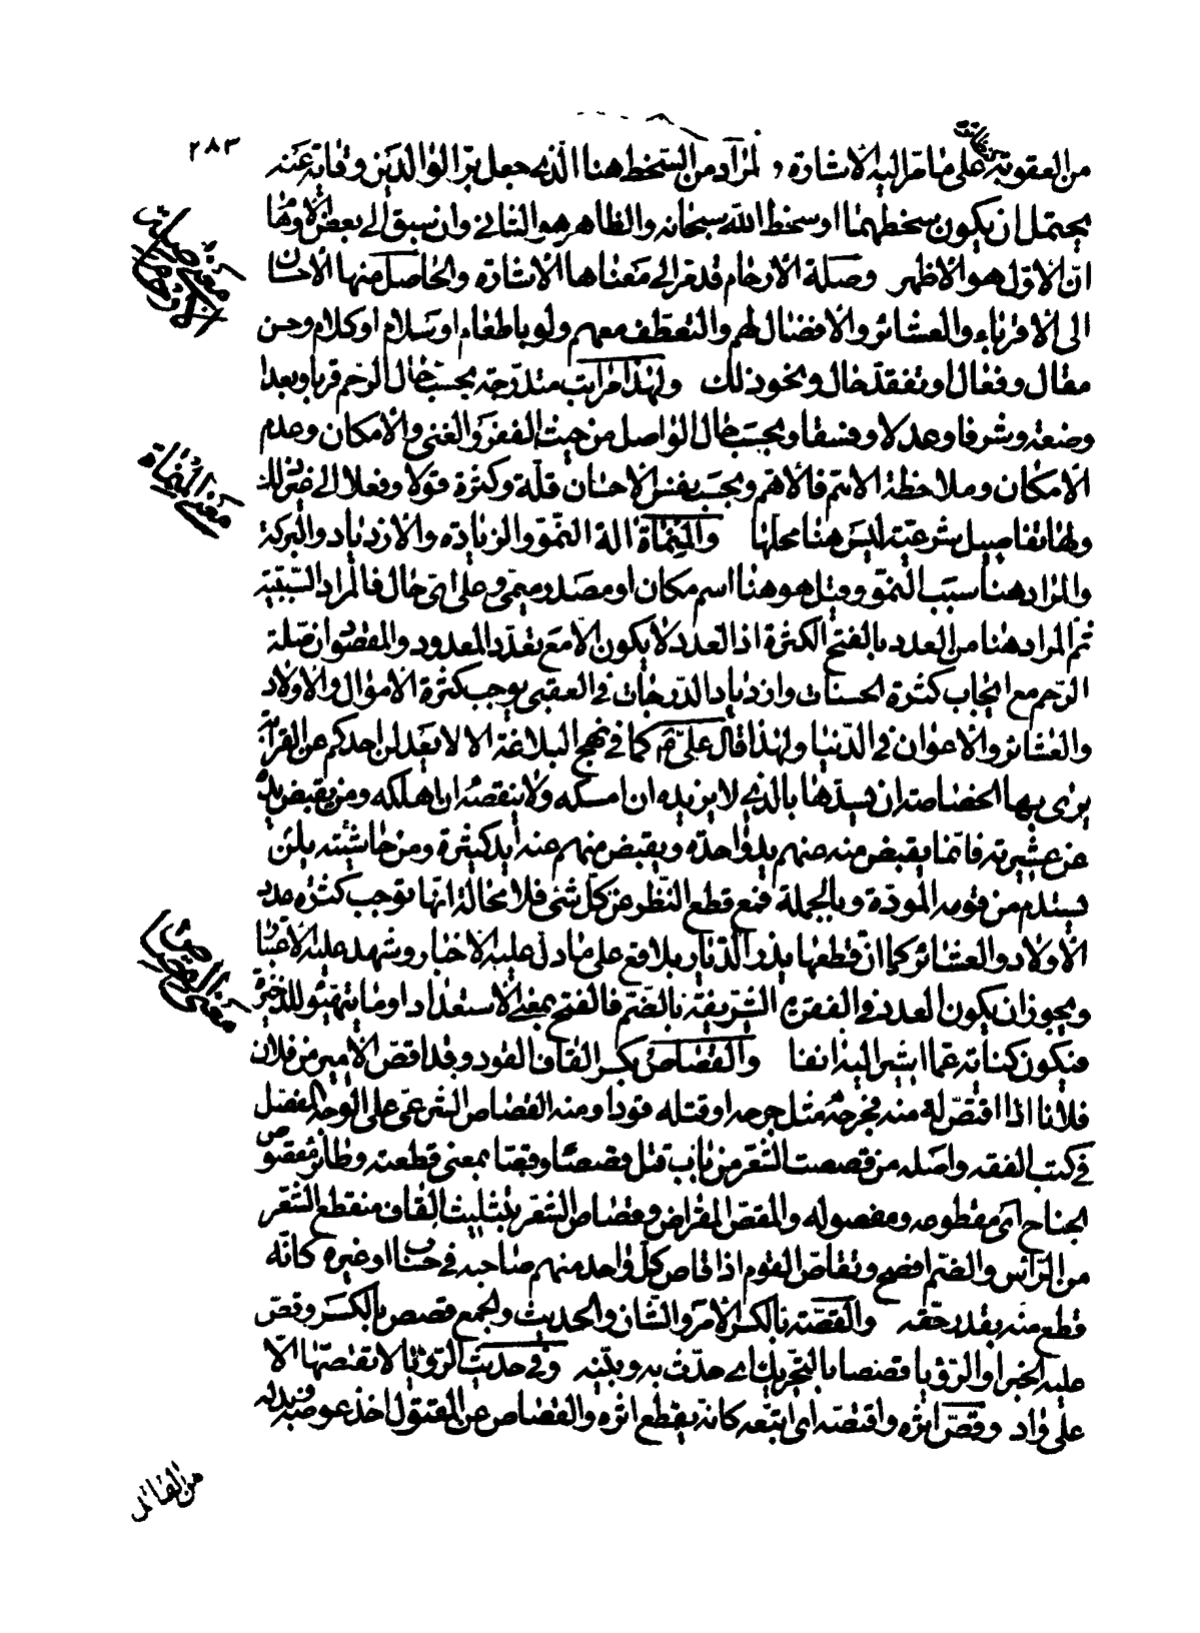 ٢٨٣
من العقوبة على ما مر اليه الاشارة و المراد من السخط هنا الذى جعل بر الوالدين وقاية عنه
يحتمل ان يكون سخطهما او سخط الله سبحانه والظاهر هو الثانى وان سبق الى بعض الاوهام
ان الاول هو الاظهر وصلة الارحام قد مر الى معناها الاشارة والحاصل منها الاحسان
الى الاقرباء والعشائر والافضال لهم والتعطف معهم ولو باطعام او سلام او كلام وحسن
مقال وفعال او تفقد حال ونحو ذلك ولهذا مراتب متدرجة بحسب حال الرحم قربا وبعدا
وضعة وشرفا وعدلا وفسقا وبحسب حال الواصل من حيث الفقر والغنى والامكان وعدم
الامكان وملاحظة الاهم فالاهم وبحسب نفس الاحسان قلة وكثرة قولا وفعلا الى غير ذلك
ولها تفاصيل شرعية ليس هنا محلها والمنماة الة النمو والزيادة والازدياد والبركة
والمراد هنا سبب النمو وقيل هو هنا اسم مكان او مصدر ميمى وعلى اى حال فالمراد السببية
ثم المراد هنا من العدد بالفتح الكثرة اذ العدد لا يكون الا مع تعدد المعدود والمقصود ان صلة
الرحم مع ايجاب كثرة الحسنات وازدياد الدرجات فى العقبى يوجب كثرة الاموال والاولاد
والعشائر والاعوان فى الدنيا ولهذا قال على ع كما فى نهج البلاغة الا لا يعدلن احدكم عن القرابة
يرى بها الخصاصة ان يسدها بالذى لا يزيده ان امسكه ولا ينقصه ان اهلكه ومن يقبض يده
عن عشيرته فانما يقبض منه عنهم يد واحدة ويقبض منهم عنه ايد كثيرة ومن حاشيته يلن
يستدم من قومه المودة وبالجملة فمع قطع النظر عن كل شئ فلا محالة انها توجب كثرة عدد
الاولاد والعشائر كما ان قطعها يذر الديار بلاقع على ما دل عليه الاخبار وشهد عليه الاعتبار
ويجوز ان يكون العدد فى الفقرة الشريفة بالضم فالفتح بمعنى الاستعداد او ما يتهيؤ للذخيرة
فتكون كناية عما اشير اليه انفا والقصاص بكسر القاف القود وقد اقص الامير من فلان
فلانا اذا اقتص له منه فجرحه مثل جرحه او قتله قودا ومنه القصاص الشرعى على الوجه المفصل
فى كتب الفقه واصله من قصصت الشعر من باب قتل قصصا وقصا بمعنى قطعته وطائر مقصوص
الجناح اى مقطوعه ومفصوله والمقص المقراض وقصاص الشعر بتثليث القاف منقطع الشعر
من الراس والضم افصح وتقاص القوم اذا قاص كل واحد منهم صاحبه فى حساب او غيره كانه
قطع منه بقدر حقه والقصة بالكسر الامر والشان والحديث والجمع قصص بالكسر وقص
عليه الخبر او الرؤيا قصصا بالتحريك اى حدث به وبينه وفى حديث الرؤيا لا تقصها الا
على واد وقص اثره واقتصه اى اتبعه كانه يقطع اثره والقصاص عن المقتول اخذ عوضه
من القاتل
معنى صلة الارحام
معنى المنماة
معنى القصاص